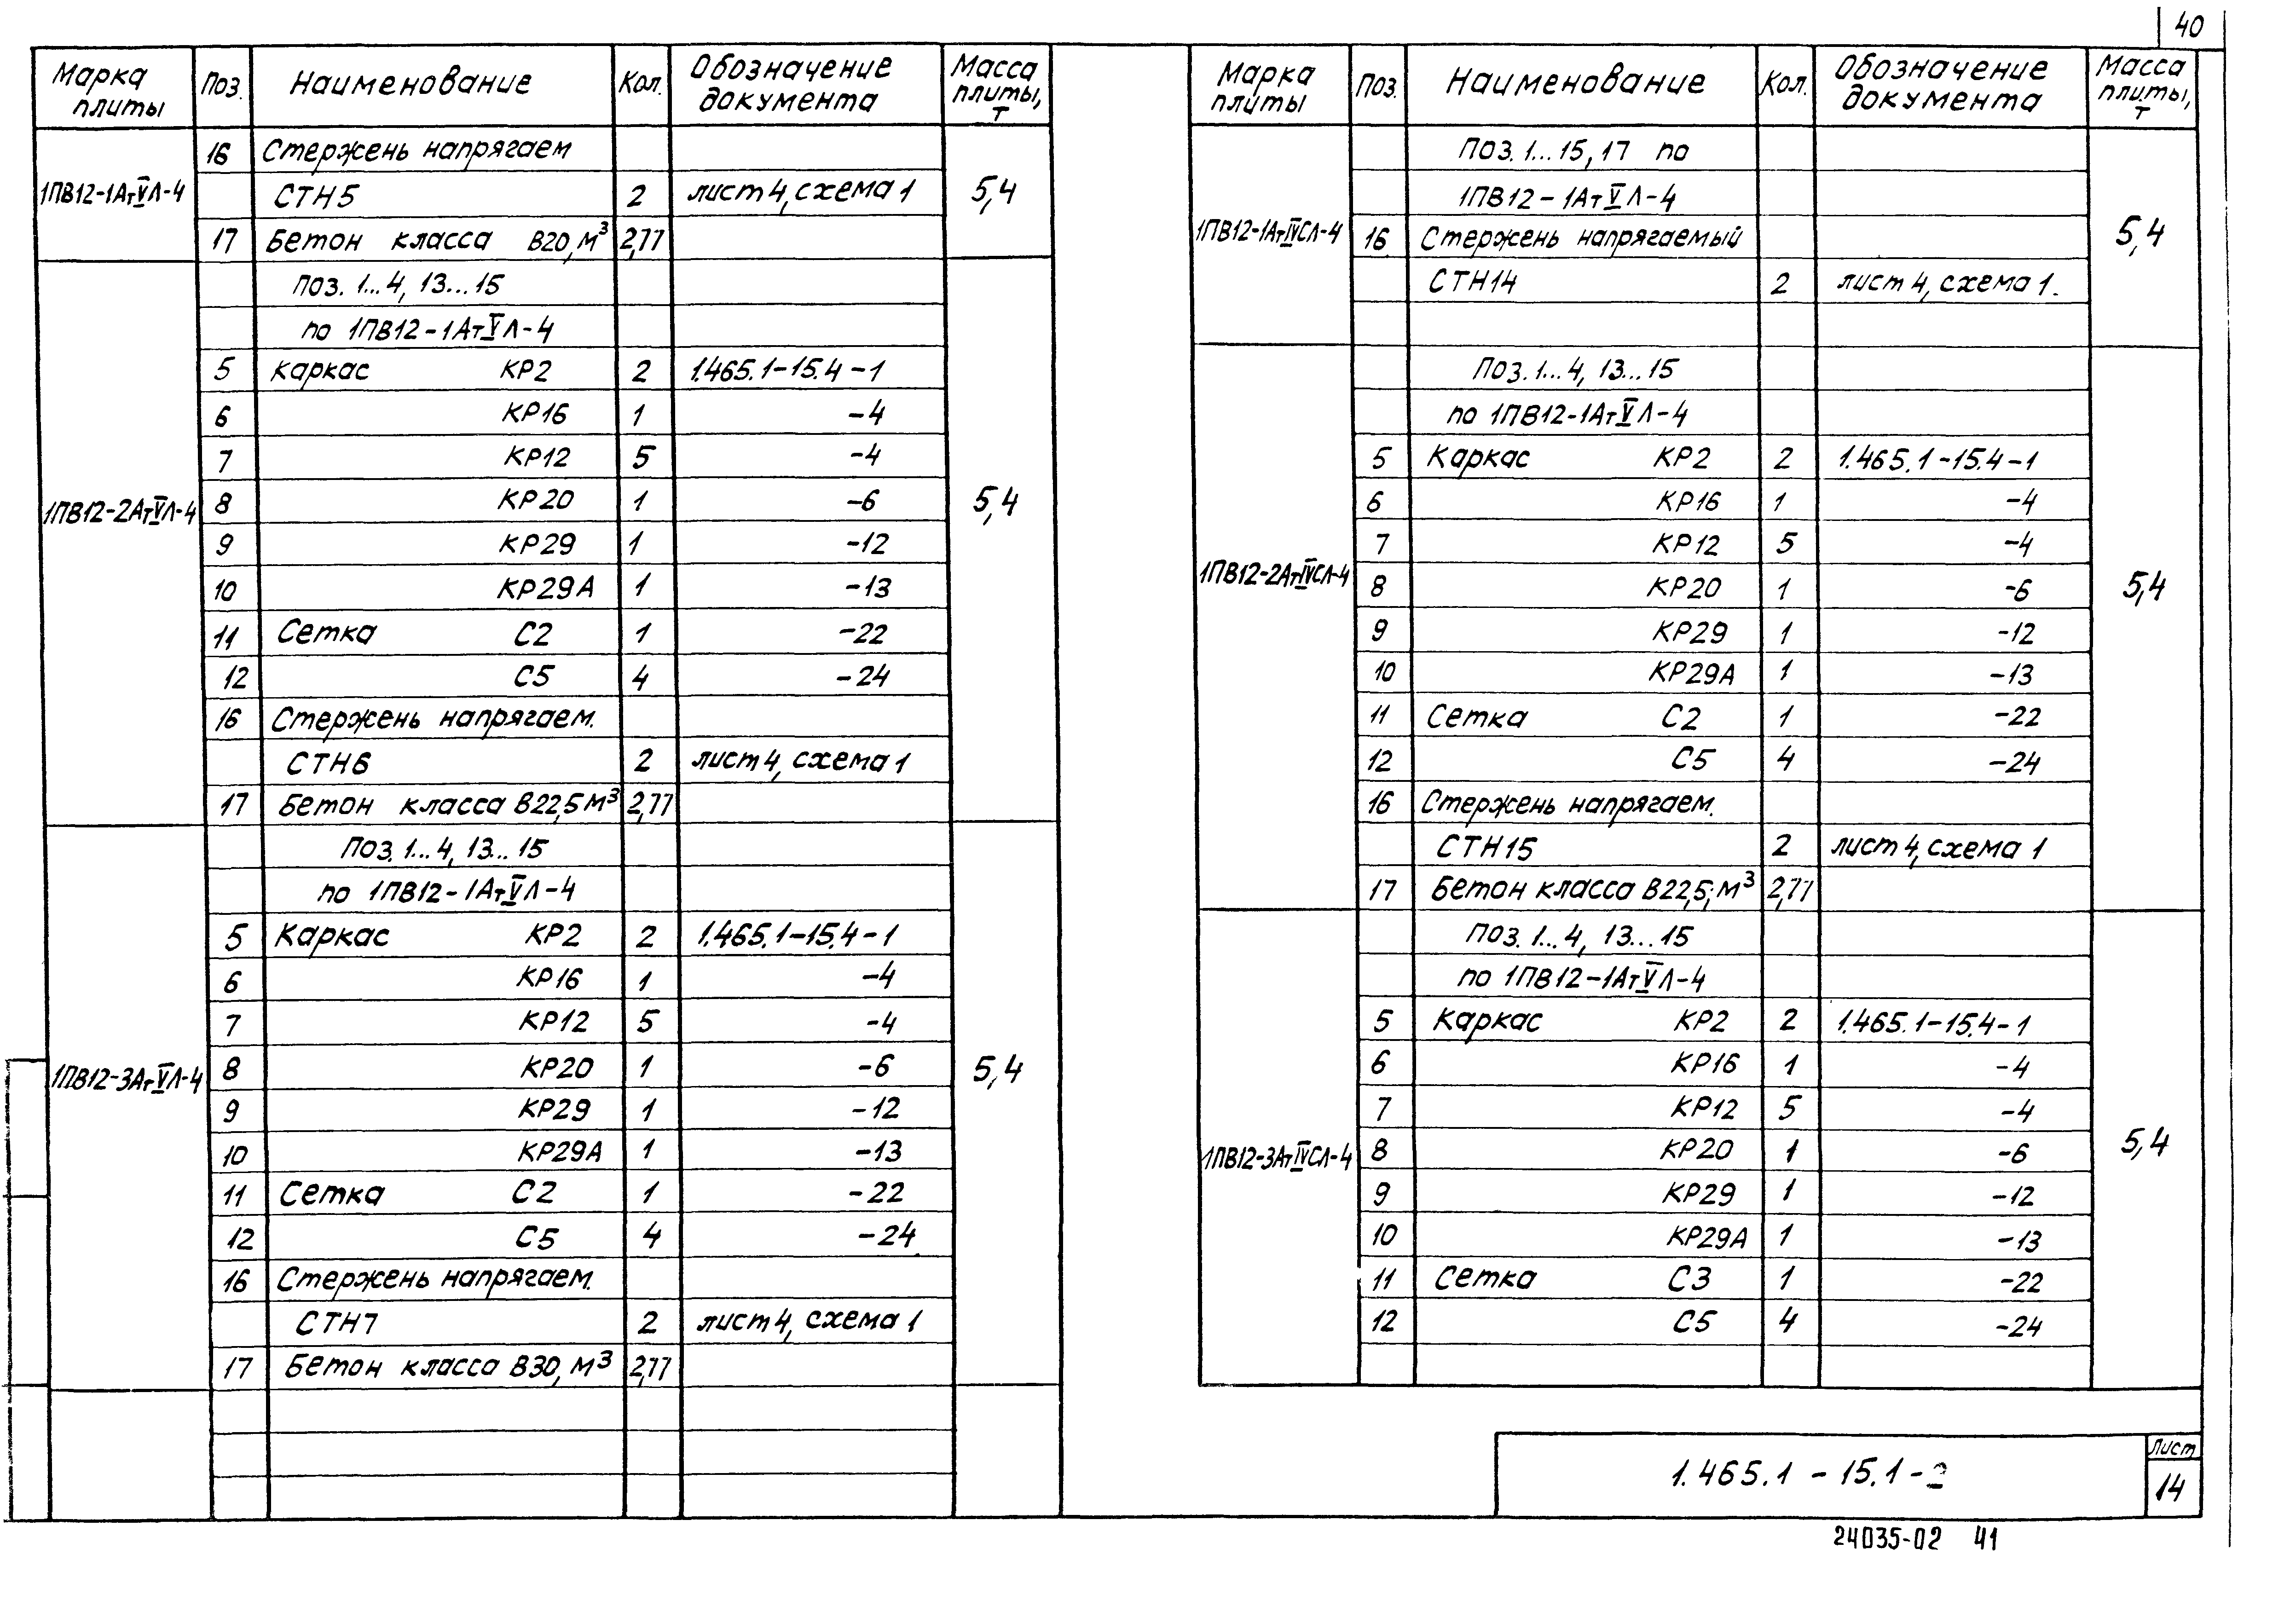 40
Марка плиты Поз. Наименование Кол. Обозначение документа Масса плиты, т
1ПВ12-1АтVЛ-4 5,4
16 Стержень напрягаем
СТН5 2 лист 4, схема 1
17 Бетон класса В20, м³ 2,77
1ПВ12-2АтVЛ-4 5,4
поз. 1...4, 13...15
по 1ПВ12-1АтVЛ-4
5 Каркас КР2 2 1.465.1-15.4-1
6 КР16 1 -4
7 КР12 5 -4
8 КР20 1 -6
9 КР29 1 -12
10 КР29А 1 -13
11 Сетка С2 1 -22
12 С5 4 -24
16 Стержень напрягаем.
СТН6 2 лист 4, схема 1
17 Бетон класса В22,5 м³ 2,77
1ПВ12-3АтVЛ-4 5,4
Поз. 1...4, 13...15
по 1ПВ12-1АтVЛ-4
5 Каркас КР2 2 1.465.1-15.4-1
6 КР16 1 -4
7 КР12 5 -4
8 КР20 1 -6
9 КР29 1 -12
10 КР29А 1 -13
11 Сетка С2 1 -22
12 С5 4 -24
16 Стержень напрягаем.
СТН7 2 лист 4, схема 1
17 Бетон класса В30, м³ 2,77
Марка плиты Поз. Наименование Кол. Обозначение документа Масса плиты, т
1ПВ12-1АтIVСЛ-4 5,4
Поз. 1...15, 17 по
1ПВ12-1АтVЛ-4
16 Стержень напрягаемый
СТН14 2 лист 4, схема 1.
1ПВ12-2АтIVСЛ-4 5,4
Поз. 1...4, 13...15
по 1ПВ12-1АтVЛ-4
5 Каркас КР2 2 1.465.1-15.4-1
6 КР16 1 -4
7 КР12 5 -4
8 КР20 1 -6
9 КР29 1 -12
10 КР29А 1 -13
11 Сетка С2 1 -22
12 С5 4 -24
16 Стержень напрягаем.
СТН15 2 лист 4, схема 1
17 Бетон класса В22,5; м³ 2,77
1ПВ12-3АтIVСЛ-4 5,4
Поз. 1...4, 13...15
по 1ПВ12-1АтVЛ-4
5 Каркас КР2 2 1.465.1-15.4-1
6 КР16 1 -4
7 КР12 5 -4
8 КР20 1 -6
9 КР29 1 -12
10 КР29А 1 -13
11 Сетка С3 1 -22
12 С5 4 -24
1.465.1-15.1-2
Лист
14
24035-02 41